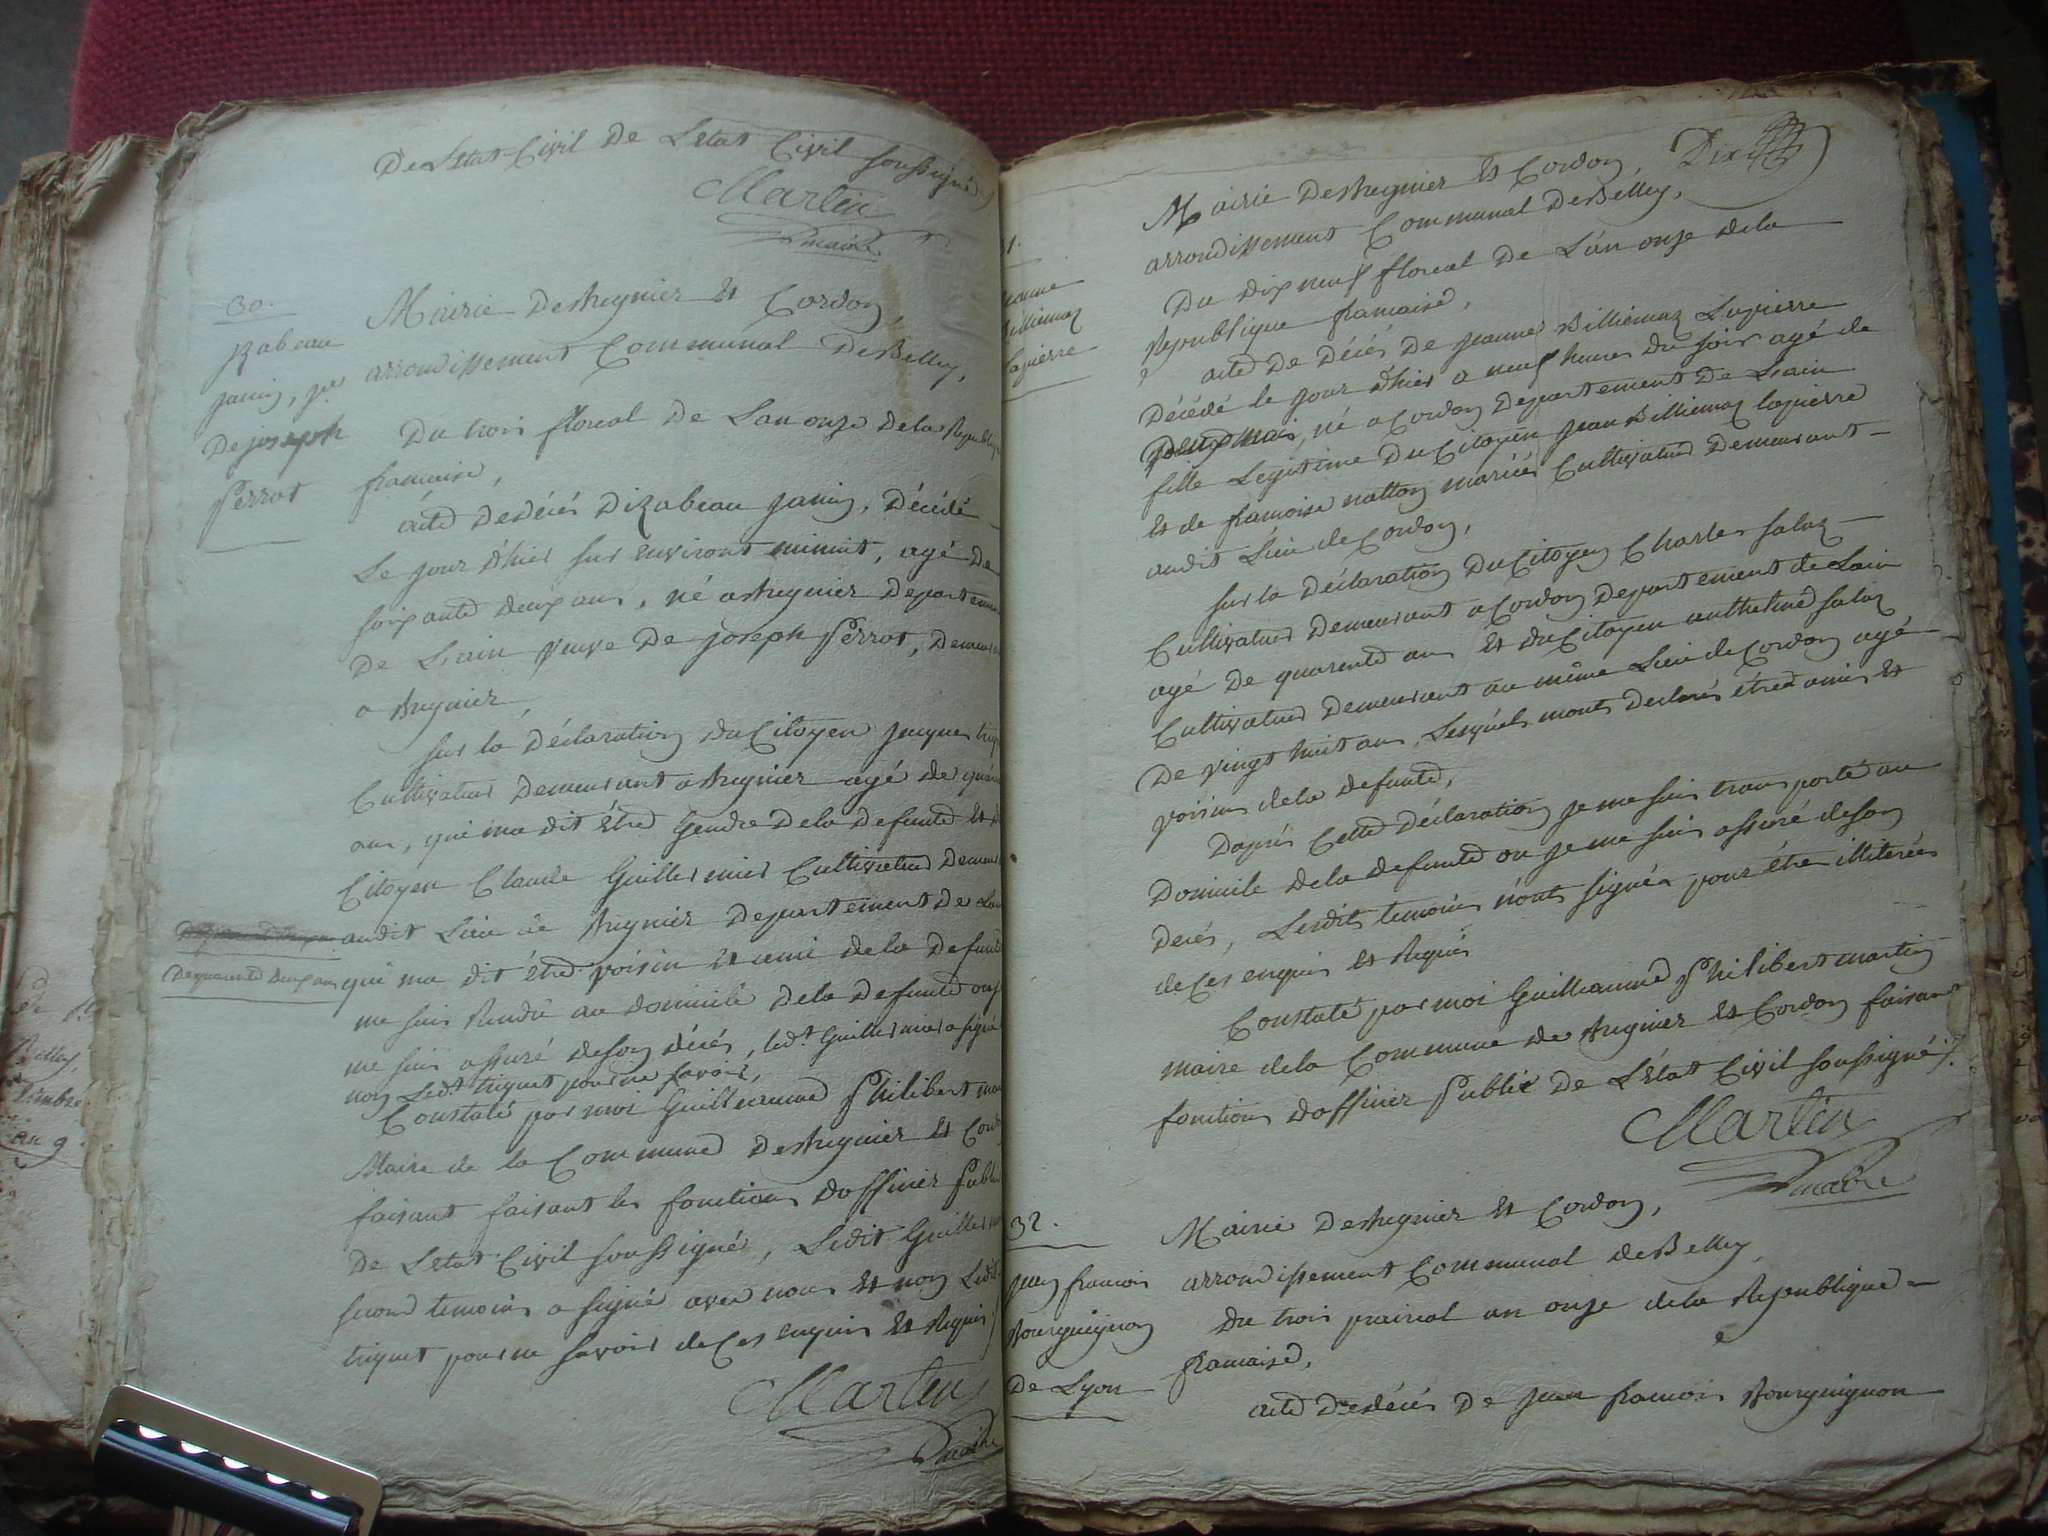 De L'Etat Civil de L'Etat Civil soussigné
Martin
maire
30.
Izabeau
Janin, ve
De joseph
Perrot
Mairie De Bregnier Et Cordon,
arrondissement Communal De Belley,
Du trois floreal De L'an onze dela Republique
francaise,
acte De décés D'izabeau Janin, Décédé
Le jour d'hier sur environt minuit, agé De
soixante deux ans, né a Bregnier Departement
De L'ain veuve De joseph Perrot, Demeurant
a Bregnier,
sur la Déclaration Du Citoyen jacques
Cultivateur Demeurant a Bregnier agé de
ans, qui ma dit être gendre De la Defunte Et
Citoyen Claude Guillermier Cultivateur
audit Lieu de Bregnier Departement De L'ain
De quarente deux ans
qui ma dit être voisin et ami de la Defunte
me suis Rendu au domicile De la Defunte ou je
me suis assuré de son décés, led.t Guillermier a signé
non Led.t triquet pour ne savoir,
Constaté par moi Guilleaume Philibert
Maire de la Commune De Bregnier Et
faisant faisant les fonctions d'officier
De L'Etat Civil soussigné, Ledit
second temoins a signé avec nous Et non Ledit
triquet pour ne savoir de Ces enquis Et Requis
Martin
maire
Dix
31.
Jeanne
Billiemaz
Lapierre
Mairie De Bregnier Et Cordon,
arrondissement Communal De Belley,
Du dix neuf floreal De L'an onze dela
Republique francaise,
acte De Décés De jeanne Billiemaz Lapierre
Décédé le jour d'hier a neuf heures du soir agé de
né a Cordon Departement De L'ain
fille Legitime Du Citoyen jean Billiemaz lapierre
Et de francoise natton mariés Cultivateur Demeurant
audit Lieu de Cordon,
sur la Déclaration Du Citoyen Charles salaz
Cultivateur Demeurant a Cordon Departement de L'ain
agé De quarente ans Et du Citoyen anthelme salaz
Cultivateur Demeurant au même Lieu de Cordon agé
De vingt huit ans, Lesquels mont Declarés être amis Et
voisins dela defunte,
D'aprés Cette Déclaration je me suis transporté au
Domicile de la defunte ou je me suis assuré de son
decés, Lesdits temoins n'ont signés pour être illiterés
de Ces enquis Et Requis
Constaté par moi Guilleaume Philibert martin
maire dela Commune de Bregnier Et Cordon faisant
fonctions d'officier Public De L'état Civil soussigné
Martin
maire
32.
jean francois
Bourguignon
De Lyon
Mairie De Bregnier Et Cordon,
arrondissement Communal de Belley
Du trois prairial an onze dela Republique
francaise,
acte De décés De jean francois Bourguignon